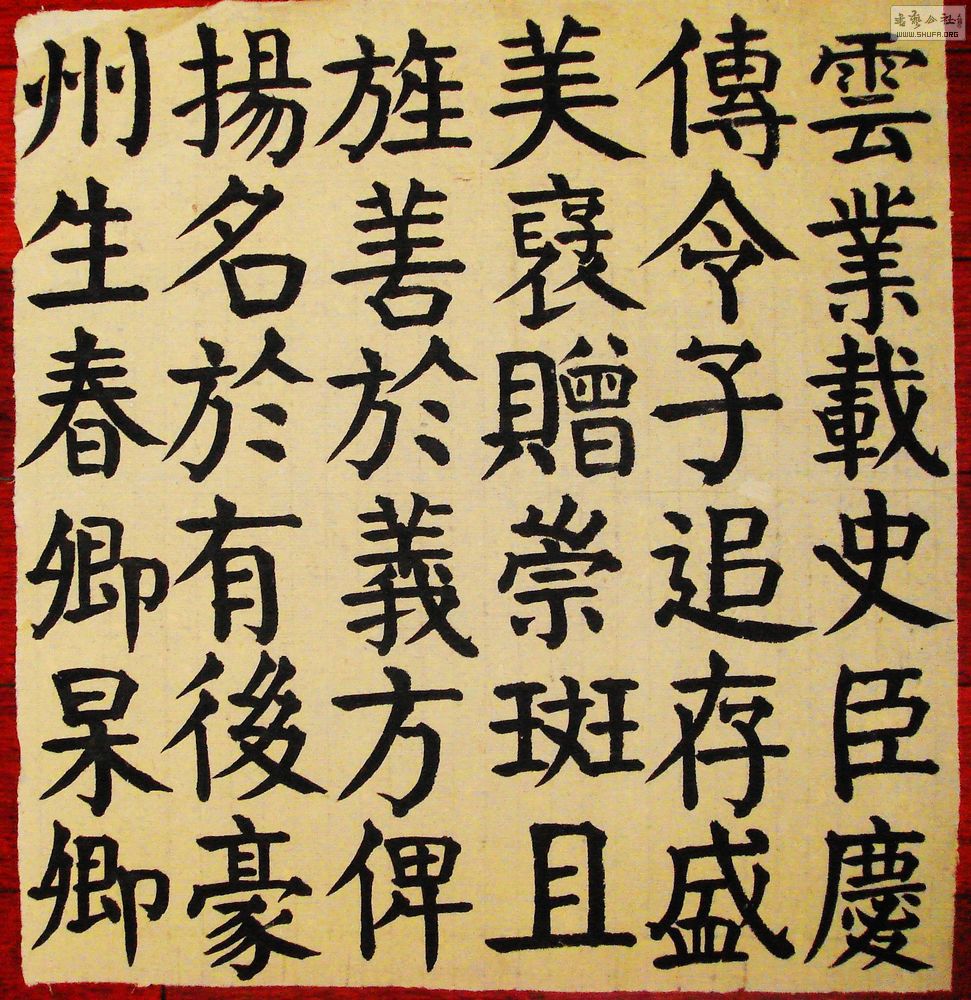 雲業載史臣慶
傳令子追存盛
美襃贈崇班且
旌善於義方俾
揚名於有後豪
州生春卿杲卿
WWW.SHUFA.ORG